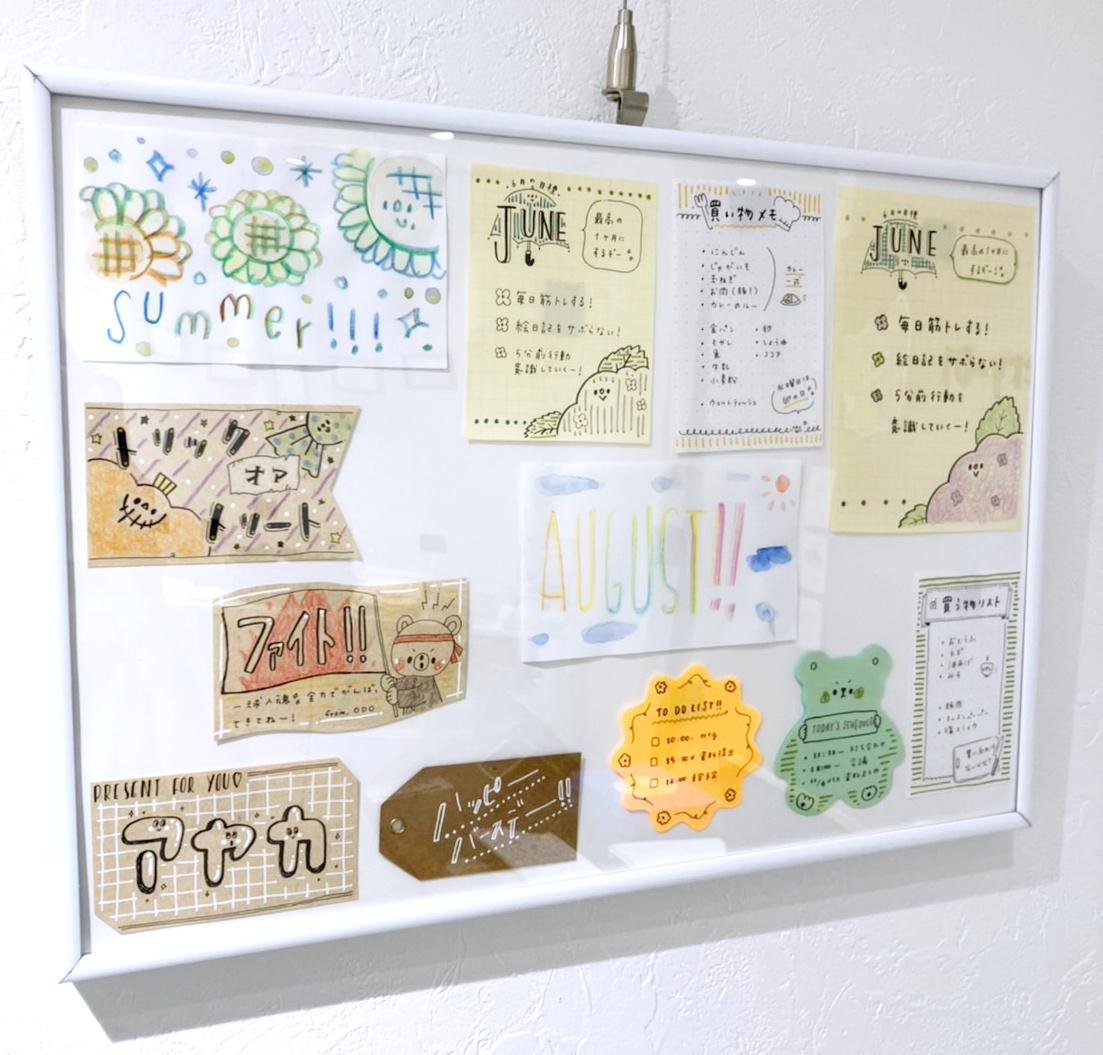 summer!!!
6月の目標
JUNE
最高の
1ヶ月に
するぞー!
毎日筋トレする!
絵日記をサボらない!
5分前行動
意識していくー!
買い物メモ
にんじん
じゃがいも
玉ねぎ
お肉(豚!)
カレーのルー
カレー
食パン
もやし
卵
しょうゆ
ココア
牛乳
小麦粉
ウェットティッシュ
水曜日は
卵の日!
6月の目標
JUNE
最高の1ヶ月に
するぞー!
毎日筋トレする!
絵日記をサボらない!
5分前行動を
意識していくー!
トリック
オア
トリート
AUGUST!!
ファイト!!
一球入魂 全力でがんばっ
てきてねー!
from.〇〇〇
買う物リスト
おとうふ
ねぎ
油あげ
豚肉
TO DO LIST!!
10:00- mtg
15:00× 資料提出
16:00
TODAY'S SCHEDULE
PRESENT FOR YOU♡
アヤカ
ハッピー
バースデー!!